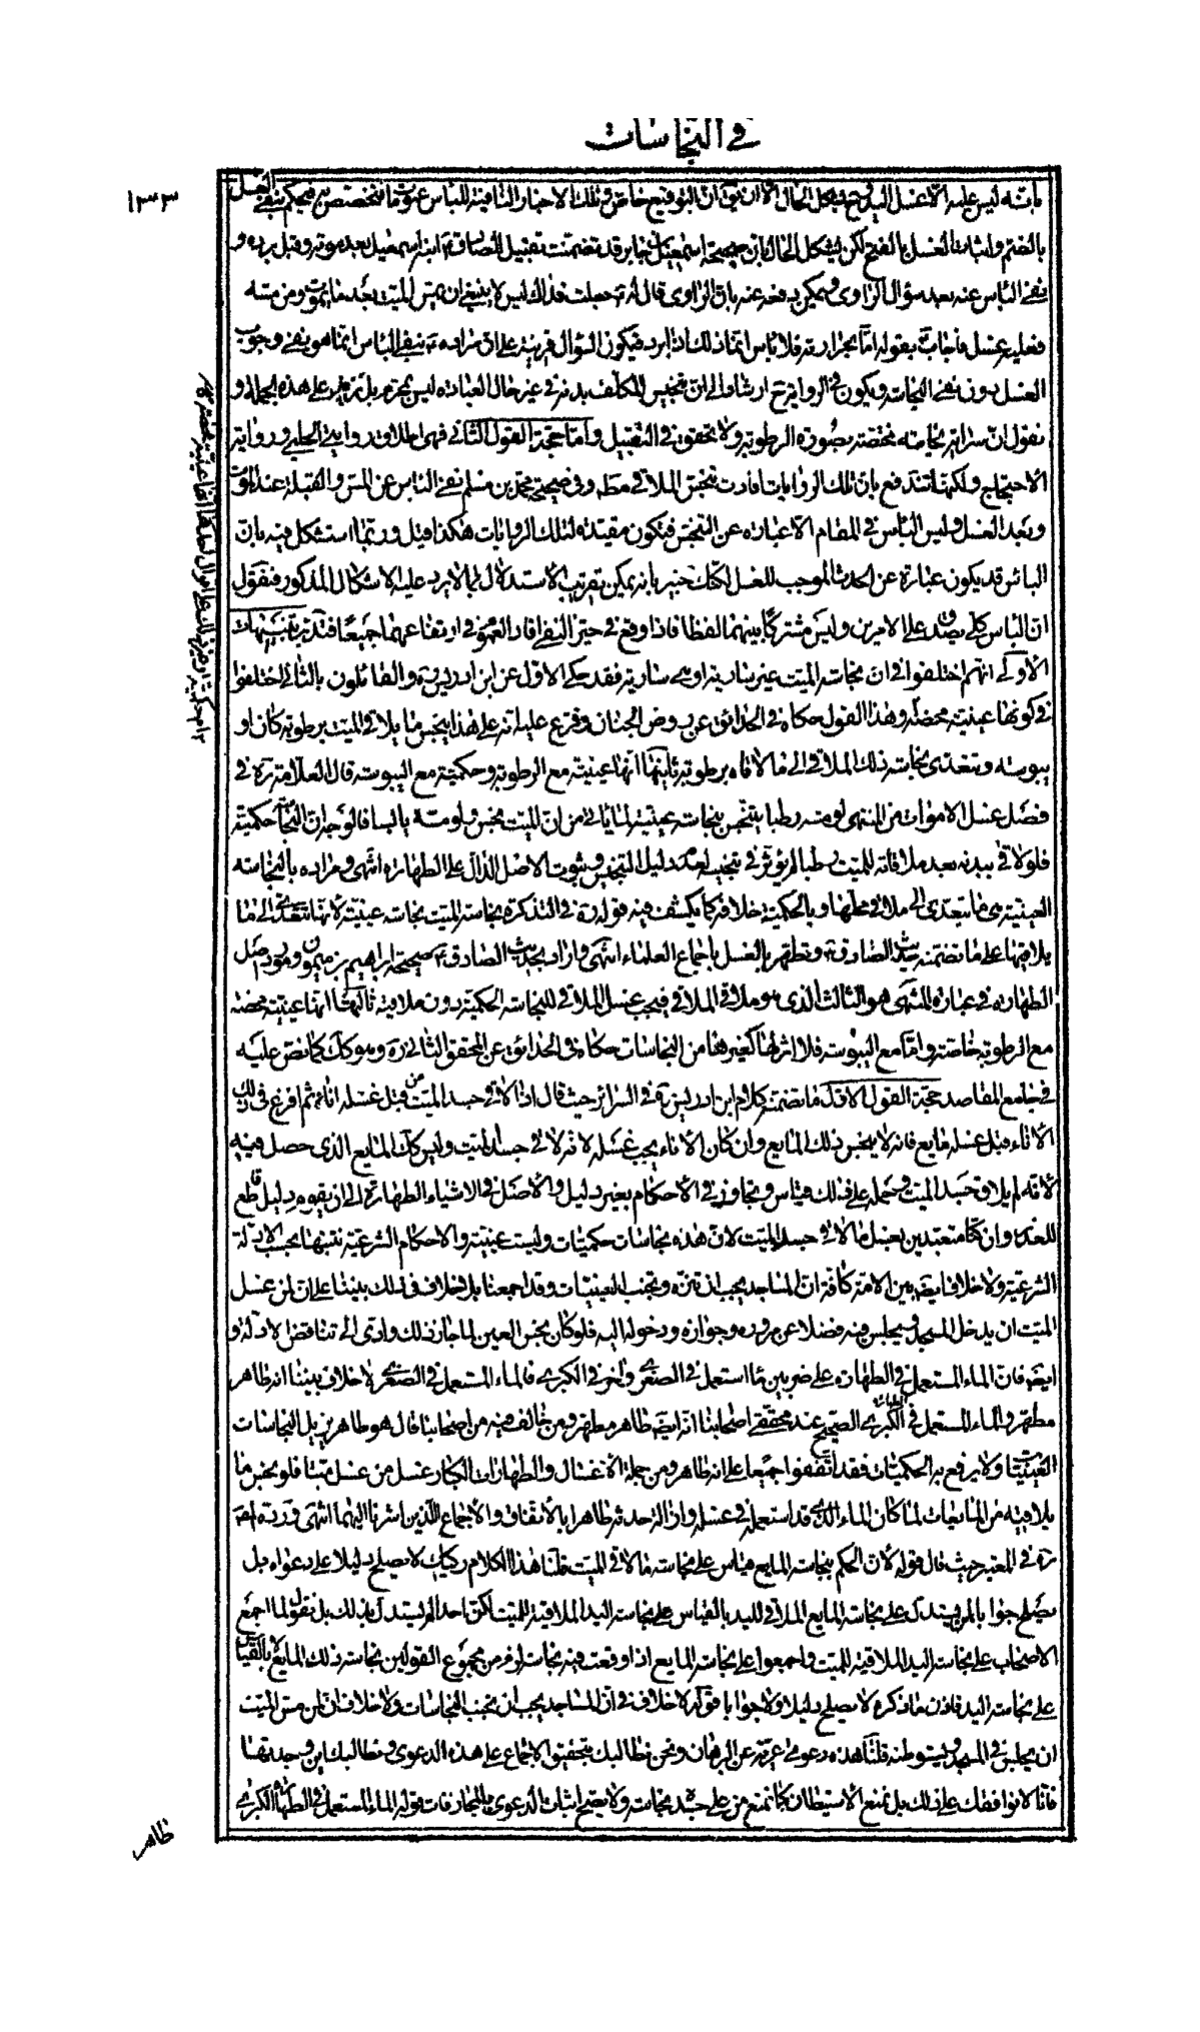 في النجاسات
١٣٣
بانه ليس عليه الا غسل اليد فح يشكل الحال الا ان يق ان التوقيع خاص وتلك الاخبار النافية للباس عمومات فتخصص به فيحكم بنفي الغسل
بالضم واثبات الغسل بالفتح لكن يشكل الحال بان صحيحة اسمعيل بن جابر قد تضمنت تقبيل الصادق ع ابنه اسمعيل بعد موته وقبل برده و
نفى الباس عنه بعد سؤال الراوى ويمكن دفعه عنه بان الراوى قال له ع جعلت فداك اليس لا ينبغي ان يمس الميت بعد ما يموت ومن مسه
فعليه غسل فاجاب بقوله اما بحرارته فلا باس انما ذلك اذا برد فيكون السؤال قرينة على ان مراده ع بنفي الباس انما هو نفي وجوب
الغسل دون نفي النجاسة ويكون في الرواية ح ارشاد الى ان تنجيس المكلف بدنه في غير حال العبادة ليس بمحرم بل نزيد على هذه الجملة و
نقول ان سراية نجاسته مختصة بصورة الرطوبة ولا تحقق في التقبيل واما حجة القول الثاني فهى اطلاق رواية الحلبي ورواية
الاحتجاج ولكنها تندفع بان تلك الروايات افادت تنجس الملاقي مط وفي صحيحة محمد بن مسلم نفي الباس عن المس والقبلة عند الموت
وبعد الغسل وليس الباس في المقام الا عبارة عن التنجس فتكون مقيدة لتلك الروايات هكذا قيل وربما استشكل فيه بان
الباس قد يكون عبارة عن الحدث الموجب للغسل لكنك خبير بانه يمكن تقريب الاستدلال بما لا يرد عليه الاشكال المذكور فنقول
ان الباس كلي يصدق على الامرين وليس مشتركا بينهما لفظا فاذا وقع في حيز النفي افاد العموم في ارتفاعهما جميعا فتدبر تنبيهات
الاول انهم اختلفوا في ان نجاسة الميت غير سارية او هي سارية فقد حكي الاول عن ابن ادريس ره والقائلون بالثاني اختلفوا
في كونها عينية محضة وهذا القول حكاه في الحدائق عن روض الجنان وفرع عليه انه على هذا ينجس ما يلاقي الميت برطوبة كان او
يبوسة وتتعدى نجاسة ذلك الملاقي الى ما لاقاه برطوبة ثانيها انها عينية مع الرطوبة وحكمية مع اليبوسة قال العلامة ره في
فصل غسل الاموات من المنتهى لو مسه رطبا ينجس نجاسة عينية لما ياتي من ان الميت نجس ولو مسه يابسا فالوجه ان النجاسة حكمية
فلو لاقى ببدنه بعد ملاقاته للميت رطبا لم يؤثر في تنجيسه لعدم دليل التنجيس وثبوت الاصل الدال على الطهارة انتهى ومراده بالنجاسة
العينية هى ما يتعدى الى ملاقي محلها وبالحكمية خلافه كما يكشف عنه قوله ره في التذكرة نجاسة الميت نجاسة عينية لانها تتعدى الى ما
يلاقيها على ما تضمنه حديث الصادق ع وتطهر بالغسل باجماع العلماء انتهى واراد بحديث الصادق ع صحيحة ابراهيم بن ميمون ومورد اصل
الطهارة في عبارة المنتهى هو الثالث الذى هو ملاقي الملاقي فيجب غسل الملاقي للنجاسة الحكمية دون ملاقيه ثالثها انها عينية محضة
مع الرطوبة خاصة واما مع اليبوسة فلا اثر لها كغيرها من النجاسات حكاه في الحدائق عن المحقق الثاني ره وهو كك كما نص عليه
في جامع المقاصد حجة القول الاول ما تضمنه كلام ابن ادريس ره في السرائر حيث قال اذا لاقى جسد الميت من قبل غسله اناء ثم افرغ في ذلك
الاناء قبل غسله مايع فانه لا ينجس ذلك المايع وان كان الاناء يجب غسله لانه لاقى جسد الميت وليس كك المايع الذي حصل فيه
لانه لم يلاق جسد الميت وحمله على ذلك قياس وتجاوز في الاحكام بغير دليل والاصل في الاشياء الطهارة الى ان يقوم دليل قاطع
للعذر وان كنا متعبدين بغسل ما لاقى جسد الميت لان هذه نجاسات حكميات وليست عينية والاحكام الشرعية نثبتها بحسب الادلة
الشرعية ولا خلاف ايضا بين الامة كافة ان المساجد يجب ان تنزه وتجنب العينيات وقد اجمعنا بلا خلاف في ذلك بيننا على ان من غسل
الميت ان يدخل المسجد ويجلس فيه فضلا عن مروره وجوازه ودخوله اليه فلو كان نجس العين لما جاز ذلك وادى الى تناقض الادلة و
ايضه فان الماء المستعمل في الطهارة على ضربين ما استعمل في الصغرى والاخر في الكبرى فالماء المستعمل في الصغرى لا خلاف بيننا انه طاهر
مطهر والماء المستعمل في الطهارة الكبرى الصحيح عند محققي اصحابنا انه ايضه طاهر مطهر ومن خالف فيه من اصحابنا قال هو طاهر يزيل النجاسات
العينيات ولا يرفع به الحكميات فقد اتفقوا جميعا على انه طاهر ومن جملة الاغسال والطهارات الكبار غسل من غسل ميتا فلو نجس ما
يلاقيه من المايعات لما كان الماء الذى قد استعمل في غسله وازالة حدثه طاهرا بالاتفاق والاجماع اللذين اشرنا اليهما انتهى ورده المحقق
ره في المعتبر حيث قال قوله لان الحكم بنجاسة المايع قياس على نجاسة ما لاقى الميت قلنا هذا الكلام ركيك لا يصلح دليلا على دعواه بل
يصلح جوابا لمن يستدل على نجاسة المايع الملاقي لليد بالقياس على نجاسة اليد الملاقية للميت لكن احدا لم يستدل بذلك بل نقول لما اجمع
الاصحاب على نجاسة اليد الملاقية للميت واجمعوا على نجاسة المايع اذا وقعت فيه نجاسة لزم من مجموع القولين نجاسة ذلك المايع لا بالقياس
على نجاسة اليد فاذن ما ذكره لا يصلح دليلا ولا جوابا قوله لا خلاف في ان المساجد يجب ان تجنب النجاسات ولا خلاف ان لمن مس الميت
ان يجلس في المسجد ويستوطنه قلنا هذه دعوى عرية عن البرهان ونحن نطالبك بتحقيق الاجماع على هذه الدعوى ونطالبك اين وجدتها
فانا لا نوافقك على ذلك بل نمنع الاستيطان كما نمنع من على جسده نجاسة ولا يصح اثبات الدعوى بالمجازفات قوله الماء المستعمل في الطهارة الكبرى
طاهر